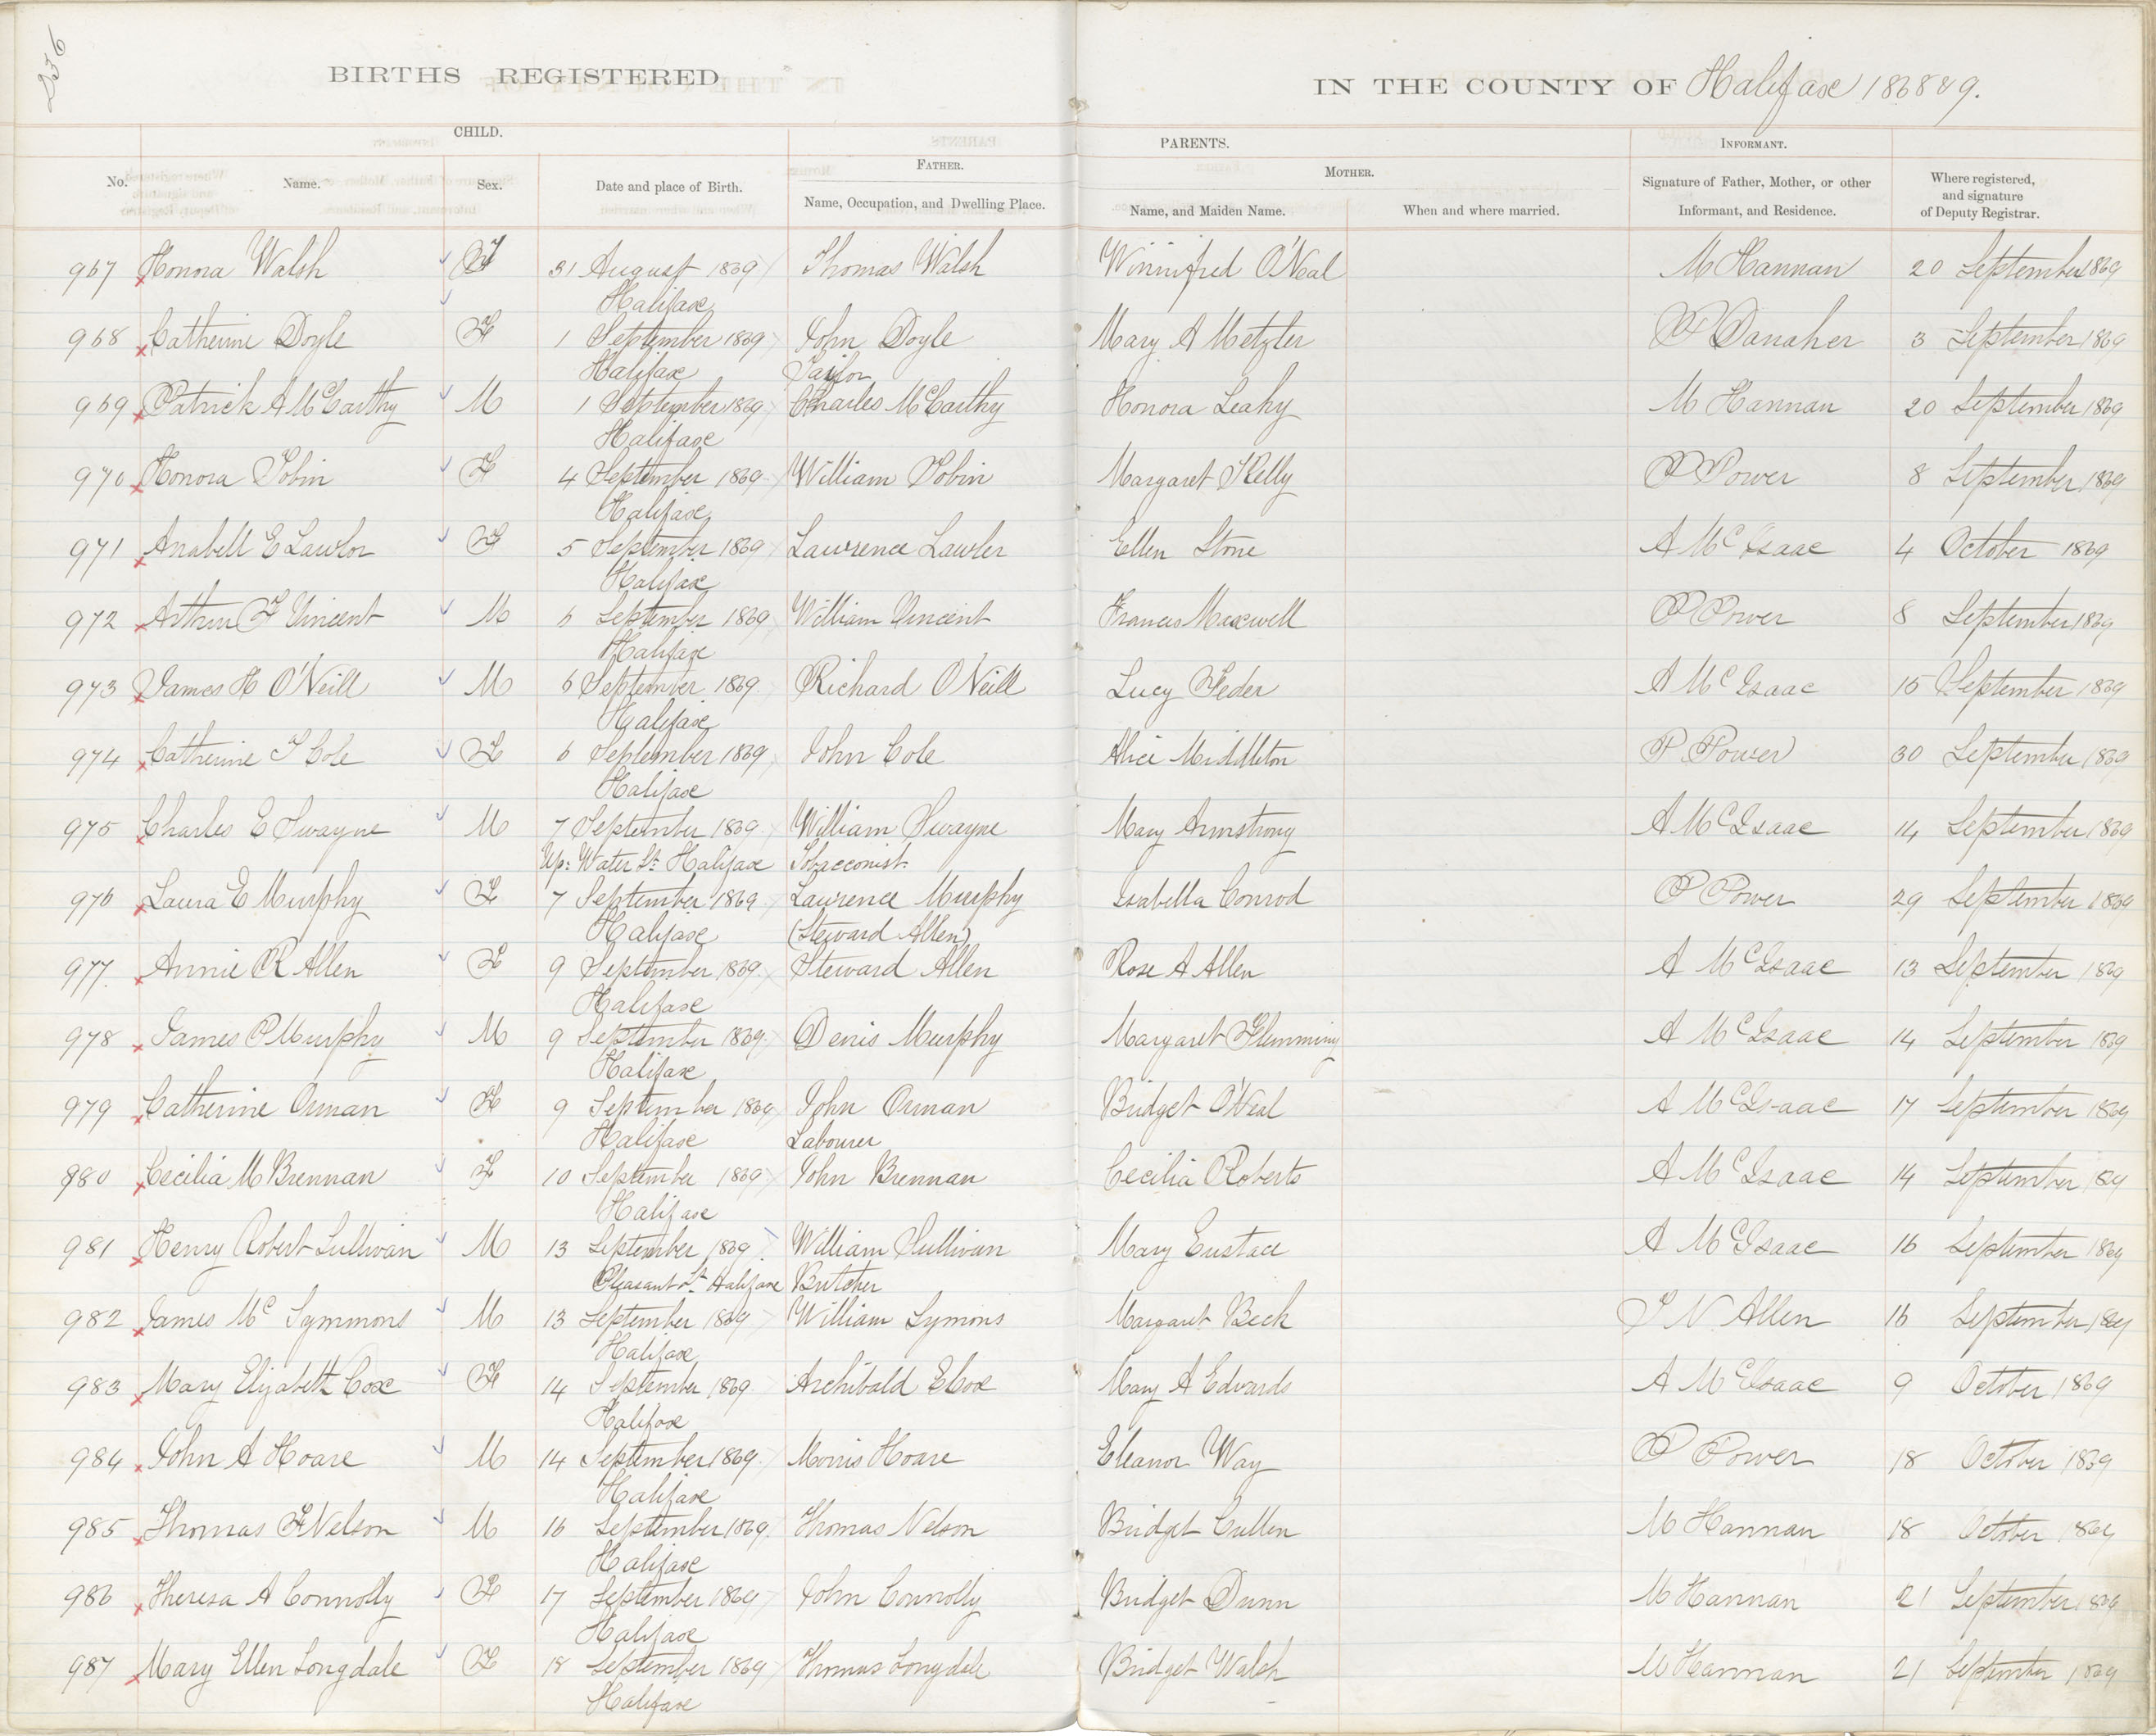 236
BIRTHS REGISTERED IN THE COUNTY OF Halifax 1868 & 9.
CHILD. PARENTS. INFORMANT.
FATHER. MOTHER.
No. Name. Sex. Date and place of Birth. Name, Occupation, and Dwelling Place. Name, and Maiden Name. When and where married. Signature of Father, Mother, or other Informant, and Residence. Where registered, and signature of Deputy Registrar.
967 Honora Walsh F 31 August 1869 Thomas Walsh Winnifred O'Neal M Hannan 20 September 1869
Halifax
968 Catherine Doyle F 1 September 1869 John Doyle Mary A Metzler P Danaher 3 September 1869
Halifax Tailor
969 Patrick A McCarthy M 1 September 1869 Charles McCarthy Honora Leahy M Hannan 20 September 1869
Halifax
970 Honora Tobin F 4 September 1869 William Tobin Margaret Kelly P Power 8 September 1869
Halifax
971 Anabell E Lawlor F 5 September 1869 Lawrence Lawler Ellen Stone A McIsaac 4 October 1869
Halifax
972 Arthur F Vincent M 6 September 1869 William Vincent Frances Maxwell P Power 8 September 1869
Halifax
973 James H O'Neill M 6 September 1869 Richard O'Neill Lucy Feder A McIsaac 15 September 1869
Halifax
974 Catherine T Cole F 6 September 1869 John Cole Alice Middleton P Power 30 September 1869
Halifax
975 Charles E Swayne M 7 September 1869 William Swayne Mary Armstrong A McIsaac 14 September 1869
Up: Water St. Halifax Tobacconist
976 Laura E Murphy F 7 September 1869 Lawrence Murphy Isabella Conrod P Power 29 September 1869
Halifax (Steward Allen)
977 Annie R Allen F 9 September 1869 Steward Allen Rose A Allen A McIsaac 13 September 1869
Halifax
978 James P Murphy M 9 September 1869 Denis Murphy Margaret Flemming A McIsaac 14 September 1869
Halifax
979 Catherine Orman F 9 September 1869 John Orman Bridget O'Neal A McIsaac 17 September 1869
Halifax Labourer
980 Cecilia M Brennan F 10 September 1869 John Brennan Cecilia Roberts A McIsaac 14 September 1869
Halifax
981 Henry Robert Sullivan M 13 September 1869 William Sullivan Mary Eustace A McIsaac 16 September 1869
Pleasant St. Halifax Butcher
982 James Mc Symmons M 13 September 1869 William Symons Margaret Beck T N Allen 16 September 1869
Halifax
983 Mary Elizabeth Cox F 14 September 1869 Archibald E Cox Mary A Edwards A McIsaac 9 October 1869
Halifax
984 John A Hoare M 14 September 1869 Morris Hoare Eleanor Way P Power 18 October 1869
Halifax
985 Thomas F Nelson M 16 September 1869 Thomas Nelson Bridget Cullen M Hannan 18 October 1869
Halifax
986 Theresa A Connolly F 17 September 1869 John Connolly Bridget Dunn M Hannan 21 September 1869
Halifax
987 Mary Ellen Longdale F 18 September 1869 Thomas Longdale Bridget Walsh M Hannan 21 September 1869
Halifax